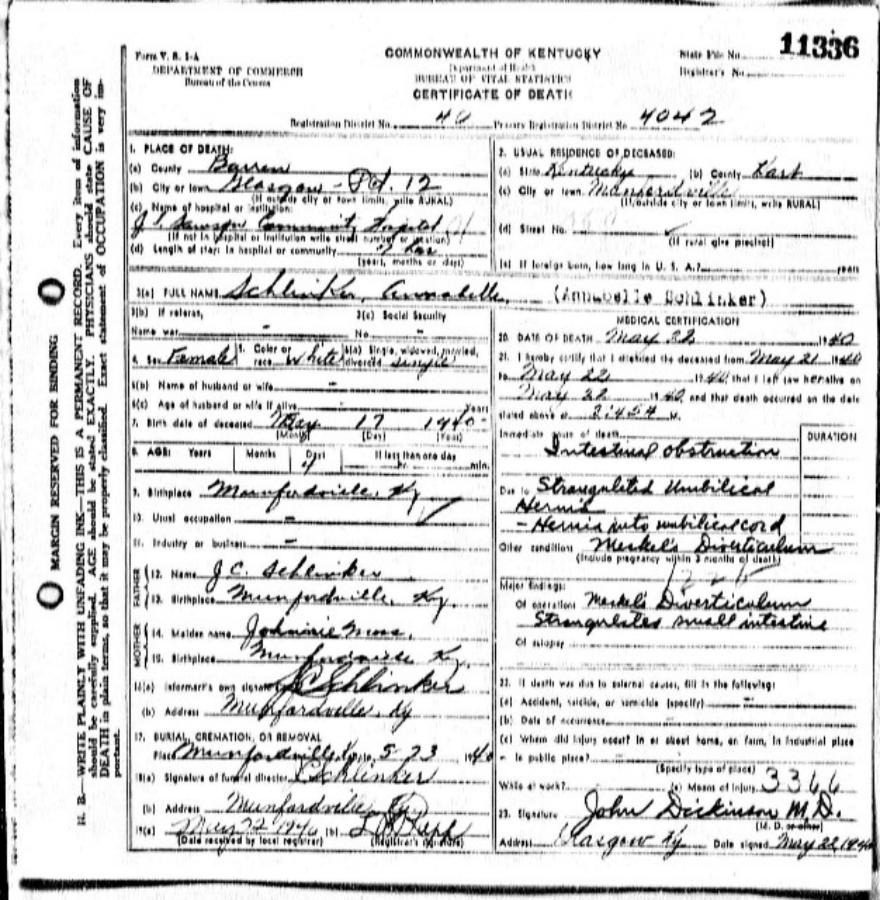 11336
Form V. S. 1-A
COMMONWEALTH OF KENTUCKY
State File No.
DEPARTMENT OF COMMERCE
Department of Health
Registrar's No.
Bureau of the Census
BUREAU OF VITAL STATISTICS
CERTIFICATE OF DEATH
Registration District No. 40 Primary Registration District No. 4042
MARGIN RESERVED FOR BINDING
N. B.—WRITE PLAINLY WITH UNFADING INK—THIS IS A PERMANENT RECORD. Every item of information
should be carefully supplied. AGE should be stated EXACTLY. PHYSICIANS should state CAUSE OF
DEATH in plain terms, so that it may be properly classified. Exact statement of OCCUPATION is very im-
portant.
1. PLACE OF DEATH:
(a) County Barren
(b) City or town Glasgow - Pct. 12
(If outside city or town limits, write RURAL)
(c) Name of hospital or institution:
Community Hospital
(If not in hospital or institution write street number or location)
(d) Length of stay: In hospital or community
(years, months or days)
2. USUAL RESIDENCE OF DECEASED:
(a) State Kentucky (b) County Hart
(c) City or town Munfordville
(If outside city or town limits, write RURAL)
(d) Street No.
(If rural give precinct)
(e) If foreign born, how long in U. S. A.? years
3(a) FULL NAME Schlinker, Annabelle, (Annabelle Schlinker)
3(b) If veteran, 3(c) Social Security
Name war - No. -
4. Sex Female 5. Color or race White 6(a) Single, widowed, married, divorced Single
6(b) Name of husband or wife -
6(c) Age of husband or wife if alive - years
7. Birth date of deceased May 17 1940
(Month) (Day) (Year)
8. AGE: Years Months Days If less than one day
hr. min.
9. Birthplace Munfordville, Ky
10. Usual occupation -
11. Industry or business -
FATHER
12. Name J C. Schlinker
13. Birthplace Munfordville, Ky.
MOTHER
14. Maiden name Johnnie
15. Birthplace Munfordville Ky
16(a) Informer's own signature J C Schlinker
(b) Address Munfordville, Ky
17. BURIAL, CREMATION, OR REMOVAL
Place Munfordville Ky Date 5-23 1940
18(a) Signature of funeral director Schlinker
(b) Address Munfordville Ky
19(a) May 22 1940 (b)
(Date received by local registrar) (Registrar's signature)
MEDICAL CERTIFICATION
20. DATE OF DEATH May 22 1940
21. I hereby certify that I attended the deceased from May 21 1940
to May 22 1940, that I last saw her alive on
May 22 1940, and that death occurred on the date
stated above at M.
Immediate cause of death DURATION
Intestinal obstruction
Due to Strangulated Umbilical
Hernia
- Hernia into umbilical cord
Other conditions Meckel's Diverticulum
(Include pregnancy within 3 months of death)
Major findings:
Of operations Meckel's Diverticulum
Strangulates small intestine
Of autopsy
22. If death was due to external causes, fill in the following:
(a) Accident, suicide, or homicide (specify)
(b) Date of occurrence
(c) Where did injury occur? In or about home, on farm, in industrial place
in public place?
(Specify type of place)
While at work? (e) Means of injury 3366
23. Signature John Dickinson M.D.
(M. D. or other)
Address Glasgow Ky Date signed May 22, 1940